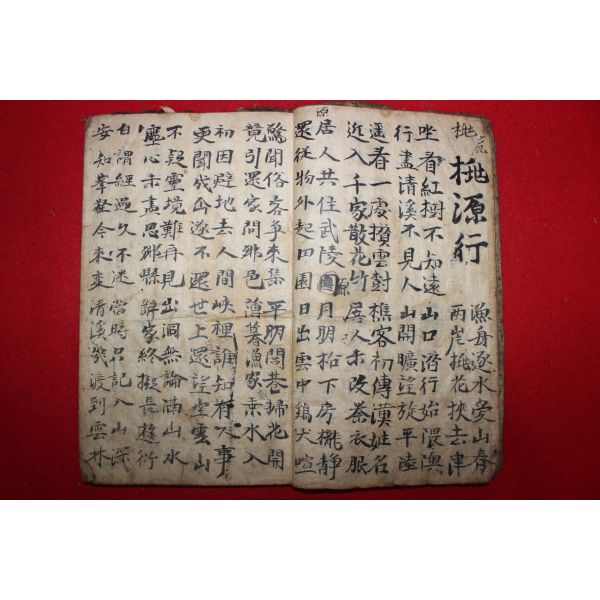 桃源行
漁舟逐水愛山春
兩岸桃花挾去津
坐看紅樹不知遠 山口潛行始隈隩
行盡清溪不見人 山開曠望旋平陸
遥看一處攢雲樹 樵客初傳漢姓名
近入千家散花竹 居人未改秦衣服
居人共住武陵源 月明松下房櫳靜
還從物外起田園 日出雲中鷄犬喧
驚聞俗客爭來集 平明閭巷掃花開
競引還家問都邑 薄暮漁家乘水入
初因避地去人間 峽裡誰知有人事
更聞成仙遂不還 世上還望空雲山
不疑靈境難再見 出洞無論隔山水
塵心未盡思鄉縣 辭家終擬長遊衍
自謂經過久不迷 當時只記入山深
安知峯壑今來変 清溪幾渡到雲林